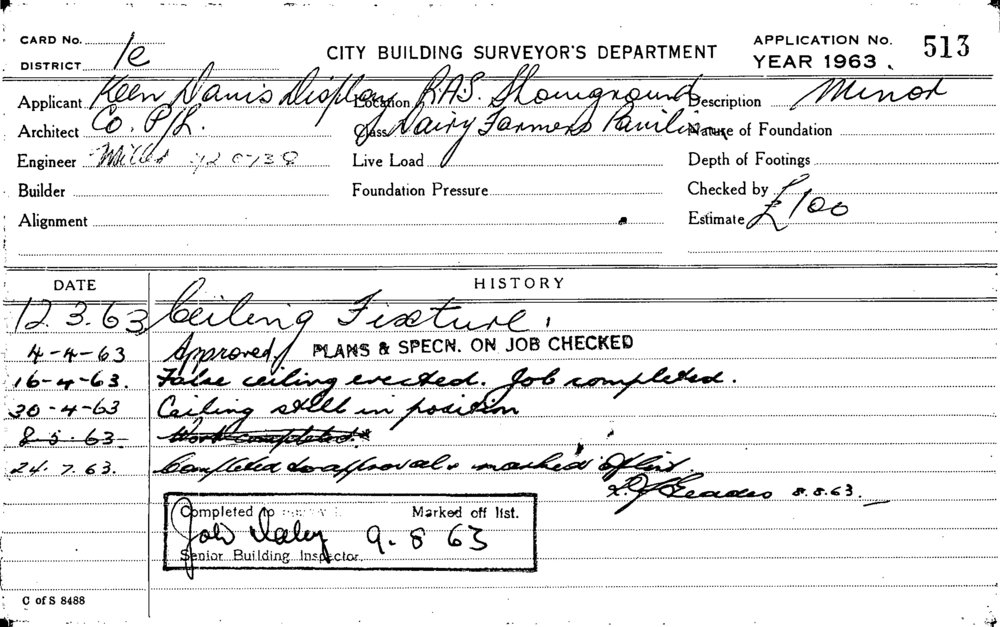 CARD No.
DISTRICT 1e
CITY BUILDING SURVEYOR'S DEPARTMENT
APPLICATION No. 513
YEAR 1963
Applicant Keen Davis Display Location R.A.S. Showground Description Minor
Architect Co. P/L. Class Dairy Farmers Pavilion Nature of Foundation
Engineer Live Load Depth of Footings
Builder Foundation Pressure Checked by
Alignment Estimate £100
DATE HISTORY
12.3.63 Ceiling Fixture.
4-4-63 Approved PLANS & SPECN. ON JOB CHECKED
16-4-63. False ceiling erected. Job completed.
30-4-63 Ceiling still in position
8-5-63 Work completed.
24.7.63. Completed to approval & marked off list.
8.8.63.
Completed to Marked off list.
9-8 63
Senior Building Inspector.
C of S 8488